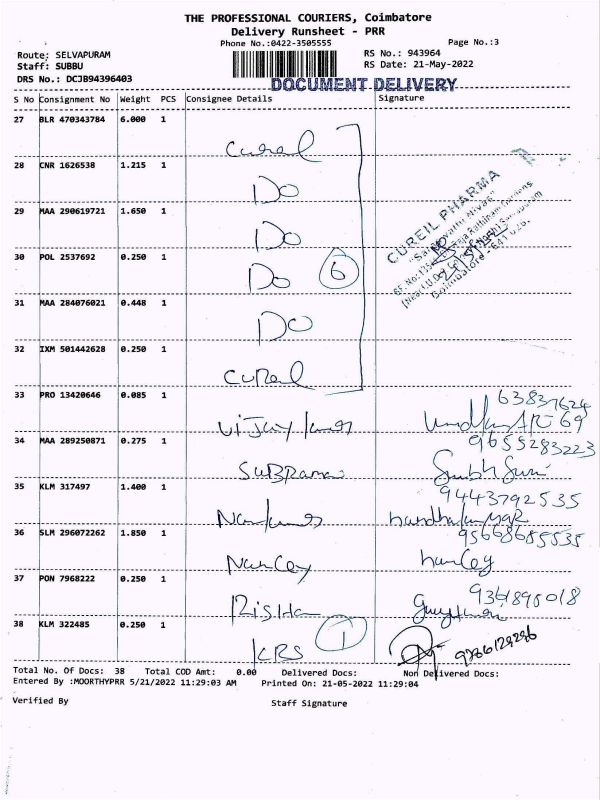 THE PROFESSIONAL COURIERS, Coimbatore
Delivery Runsheet - PRR
Phone No.:0422-3505555
Page No.:3
Route: SELVAPURAM
RS No.: 943964
Staff: SUBBU
RS Date: 21-May-2022
DRS No.: DCJB94396403
DOCUMENT DELIVERY
S No Consignment No Weight PCS Consignee Details Signature
27 BLR 470343784 6.000 1
Cureil
28 CNR 1626538 1.215 1
Do
29 MAA 290619721 1.650 1
Do
30 POL 2537692 0.250 1
Do 6
31 MAA 284076021 0.448 1
Do
32 IXM 501442628 0.250 1
Cureil
CUREIL PHARMA
33 PRO 13420646 0.085 1
Vijay kumar
34 MAA 289250871 0.275 1
9655283223
35 KLM 317497 1.400 1
9443792535
36 SLM 296072262 1.850 1
Nancey
37 PON 7968222 0.250 1
38 KLM 322485 0.250 1
KRS 1
9786129296
Total No. Of Docs: 38 Total COD Amt: 0.00 Delivered Docs: Non Delivered Docs:
Entered By :MOORTHYPRR 5/21/2022 11:29:03 AM Printed On: 21-05-2022 11:29:04
Verified By
Staff Signature